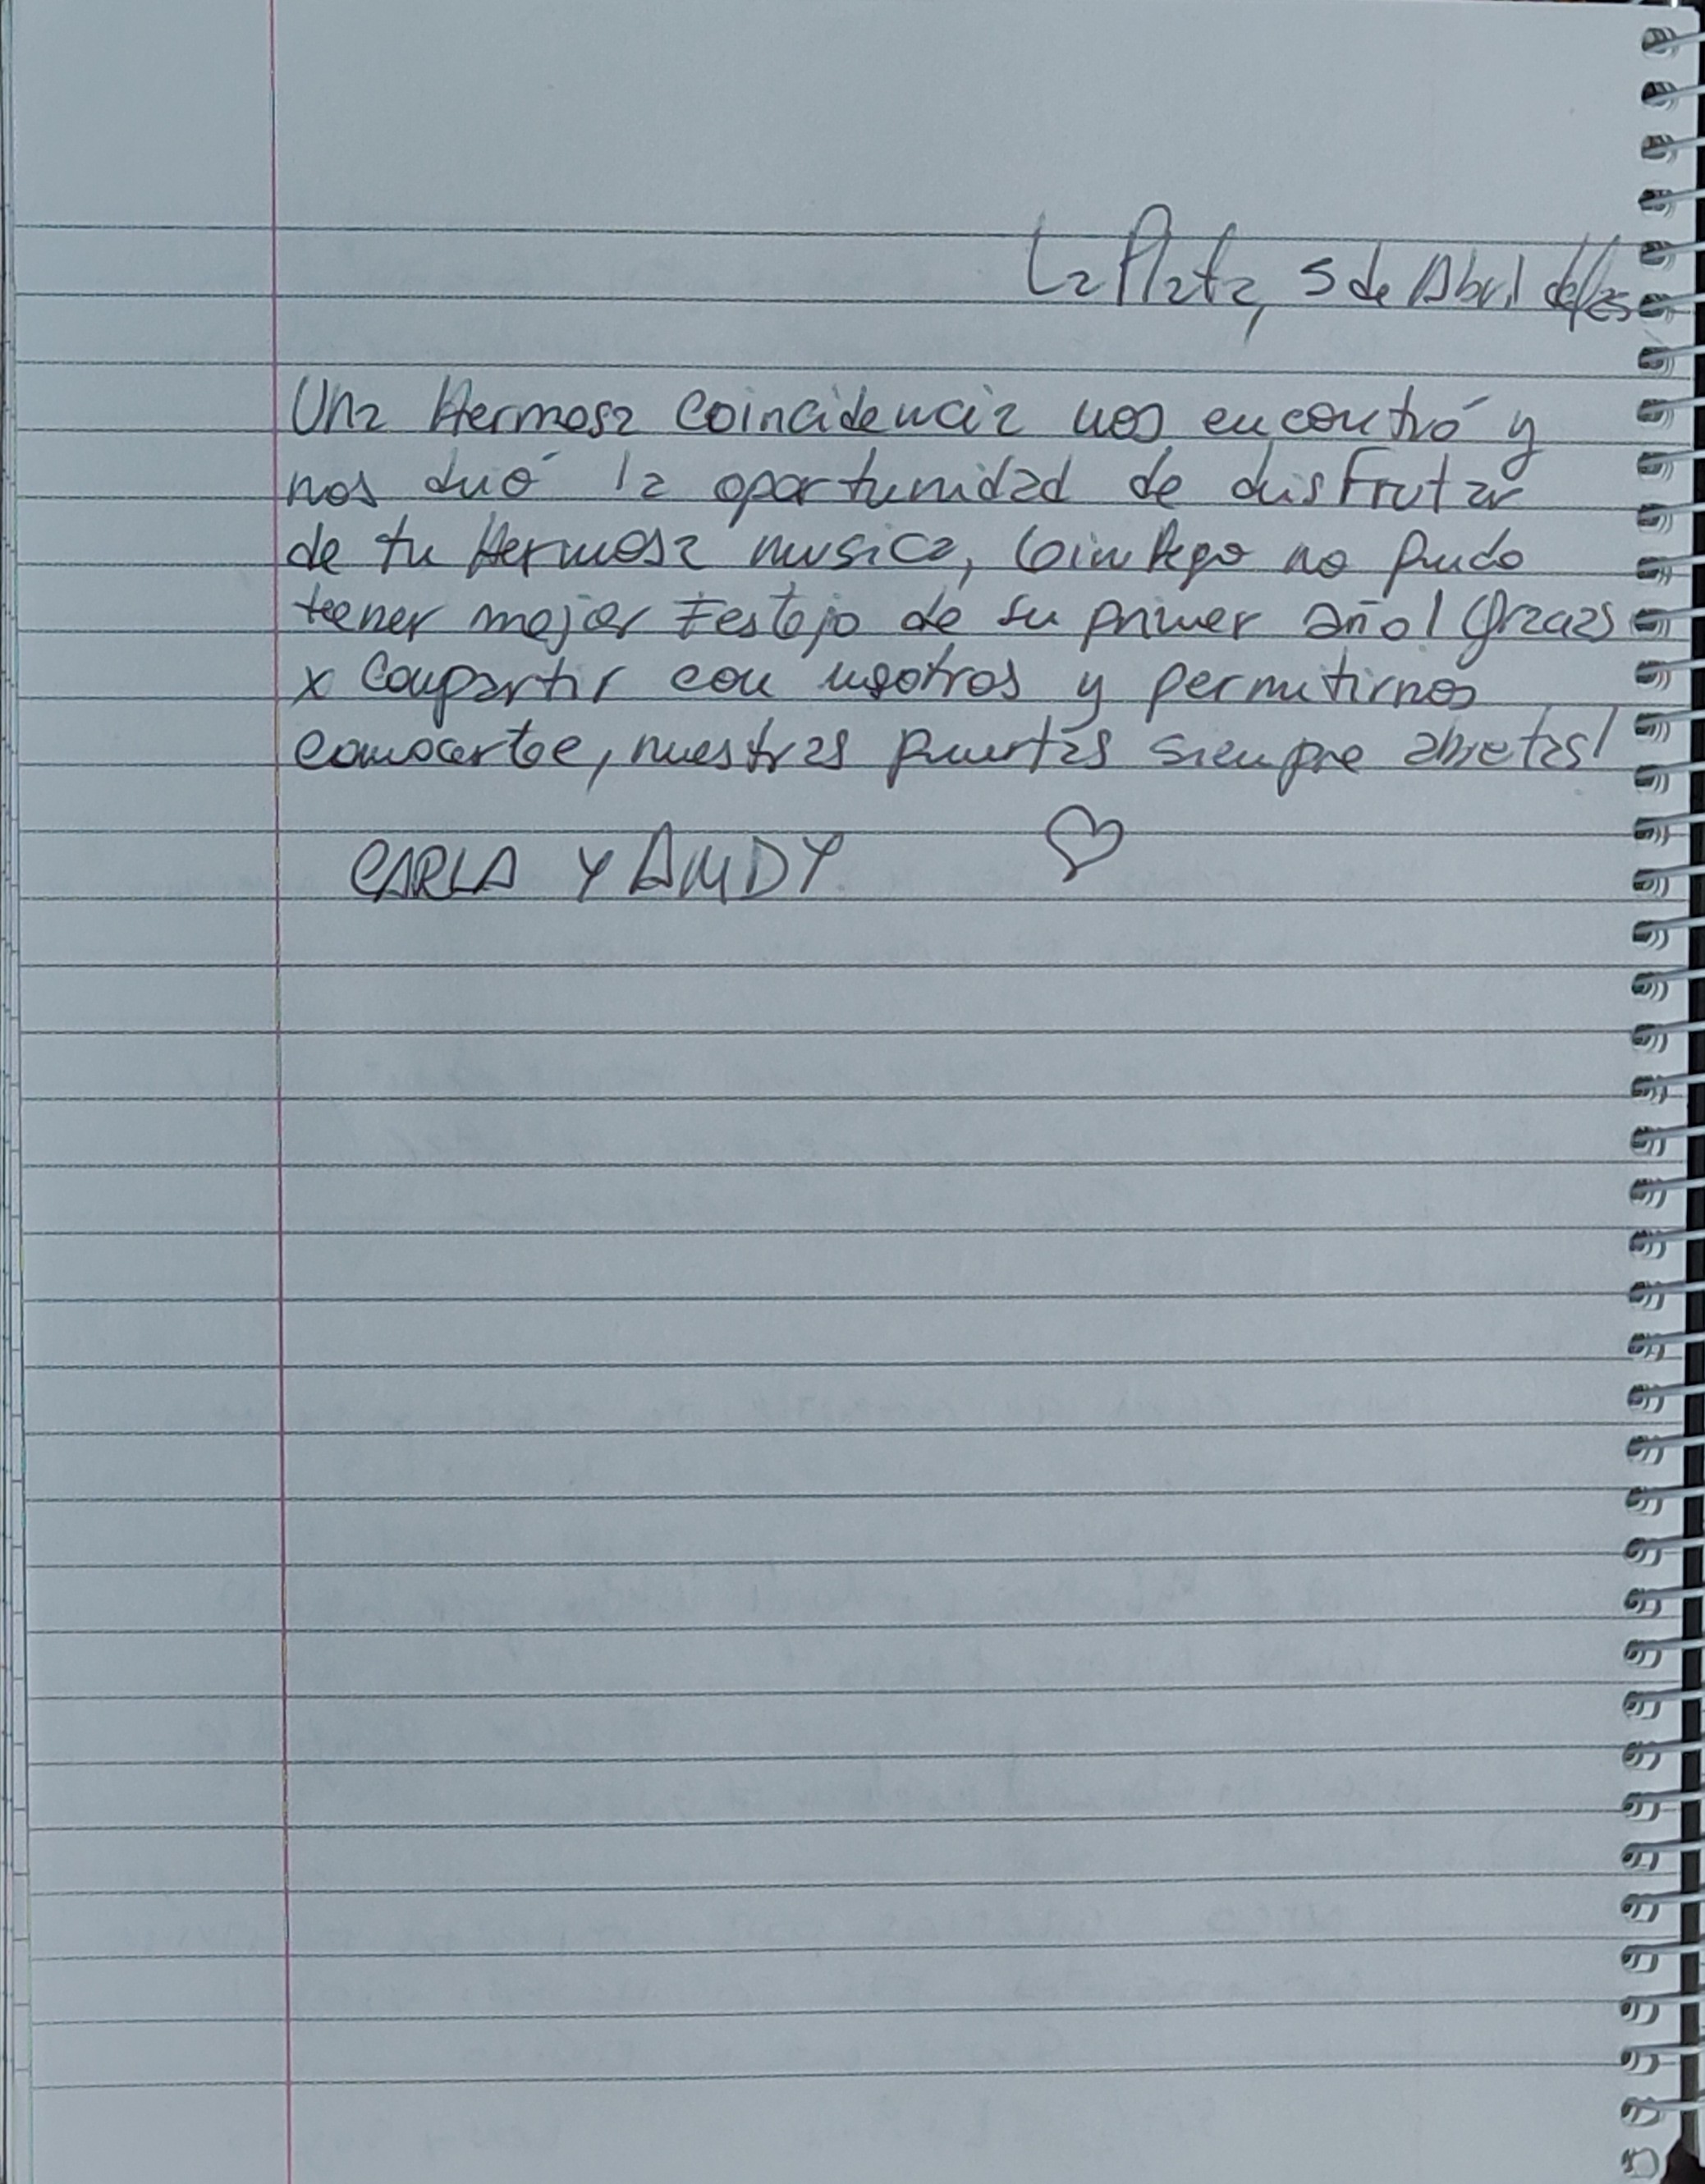 La Plata, 5 de Abril del 25
Una Hermosa Coincidencia nos encontró y
nos dió la oportunidad de disfrutar
de tu Hermosa musica, no pudo
tener mejor Festejo de su primer año! Gracias
x Compartir con nosotros y permitirnos
conocerte, nuestras puertas siempre abietas!
CARLA Y ANDY